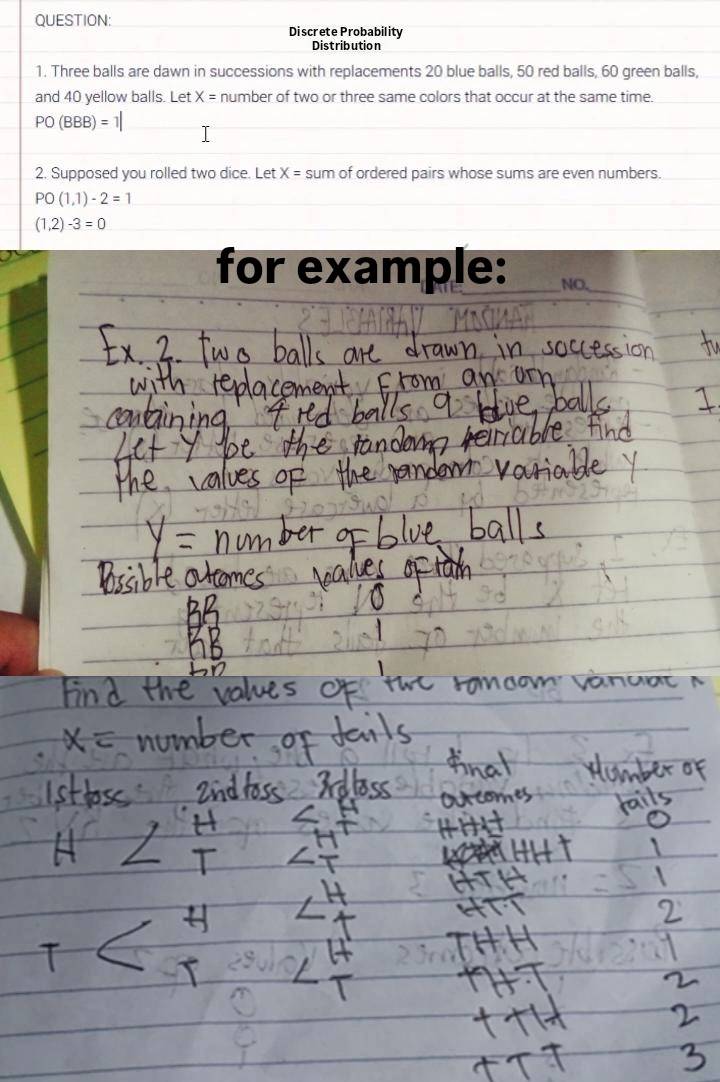 QUESTION:
Discrete Probability
Distribution
1. Three balls are dawn in successions with replacements 20 blue balls, 50 red balls, 60 green balls,
and 40 yellow balls. Let X = number of two or three same colors that occur at the same time.
PO (BBB) = 1
2. Supposed you rolled two dice. Let X = sum of ordered pairs whose sums are even numbers.
PO (1,1) - 2 = 1
(1,2) -3 = 0
for example:
DATE NO.
Ex. 2. two balls are drawn in soccession
with replacement From an urn
containing 4 red balls 9 blue balls
Let Y be the random find
the values of the random variable Y
Y = number of blue balls
Possible outcomes values of
0
RB 1
1
Find the values of the random variable X
X = number of tails
1st toss 2nd toss 3rd toss final outcomes Number of tails
H < H < H T HHH 0
T < H T HHT 1
HTH 1
T < H < H T HTT 2
T < H T THH 1
THT 2
TTH 2
TTT 3